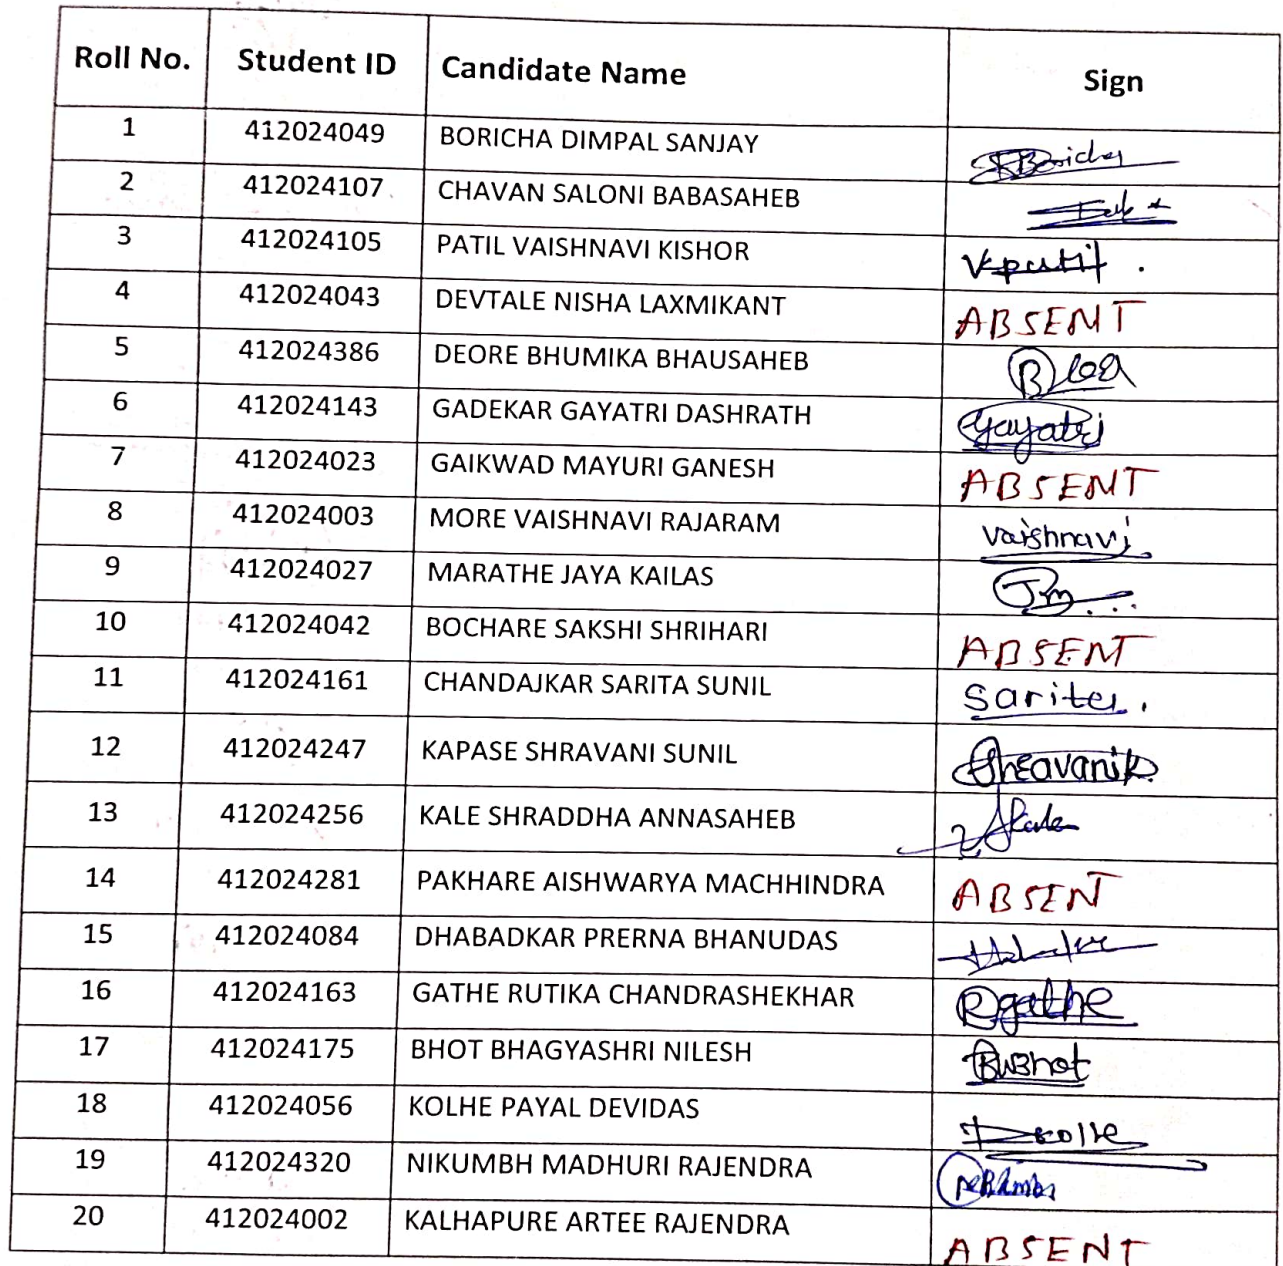 Roll No. Student ID Candidate Name Sign
1 412024049 BORICHA DIMPAL SANJAY Boricha
2 412024107 CHAVAN SALONI BABASAHEB
3 412024105 PATIL VAISHNAVI KISHOR V.patil.
4 412024043 DEVTALE NISHA LAXMIKANT ABSENT
5 412024386 DEORE BHUMIKA BHAUSAHEB
6 412024143 GADEKAR GAYATRI DASHRATH Gayatri
7 412024023 GAIKWAD MAYURI GANESH ABSENT
8 412024003 MORE VAISHNAVI RAJARAM Vaishnavi
9 412024027 MARATHE JAYA KAILAS Jm...
10 412024042 BOCHARE SAKSHI SHRIHARI ABSENT
11 412024161 CHANDAJKAR SARITA SUNIL Sarita.
12 412024247 KAPASE SHRAVANI SUNIL Shravanik
13 412024256 KALE SHRADDHA ANNASAHEB
14 412024281 PAKHARE AISHWARYA MACHHINDRA ABSENT
15 412024084 DHABADKAR PRERNA BHANUDAS
16 412024163 GATHE RUTIKA CHANDRASHEKHAR Rgathe
17 412024175 BHOT BHAGYASHRI NILESH BNBhot
18 412024056 KOLHE PAYAL DEVIDAS
19 412024320 NIKUMBH MADHURI RAJENDRA
20 412024002 KALHAPURE ARTEE RAJENDRA ABSENT